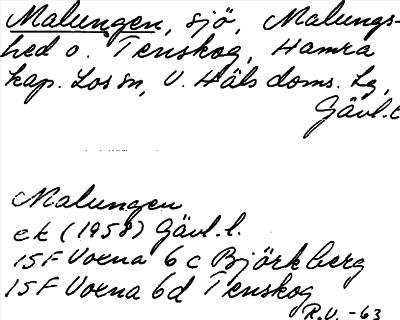 Malungen, sjö, Malungs-
hed o. Tenskog, Hamra
kap. Los sn, V. Häls doms. lg,
Gävl.l
Malungen
ek (1958) Gävl.l.
15F Voxna 6c Björkberg
15F Voxna 6d Tenskog
R.V. -63